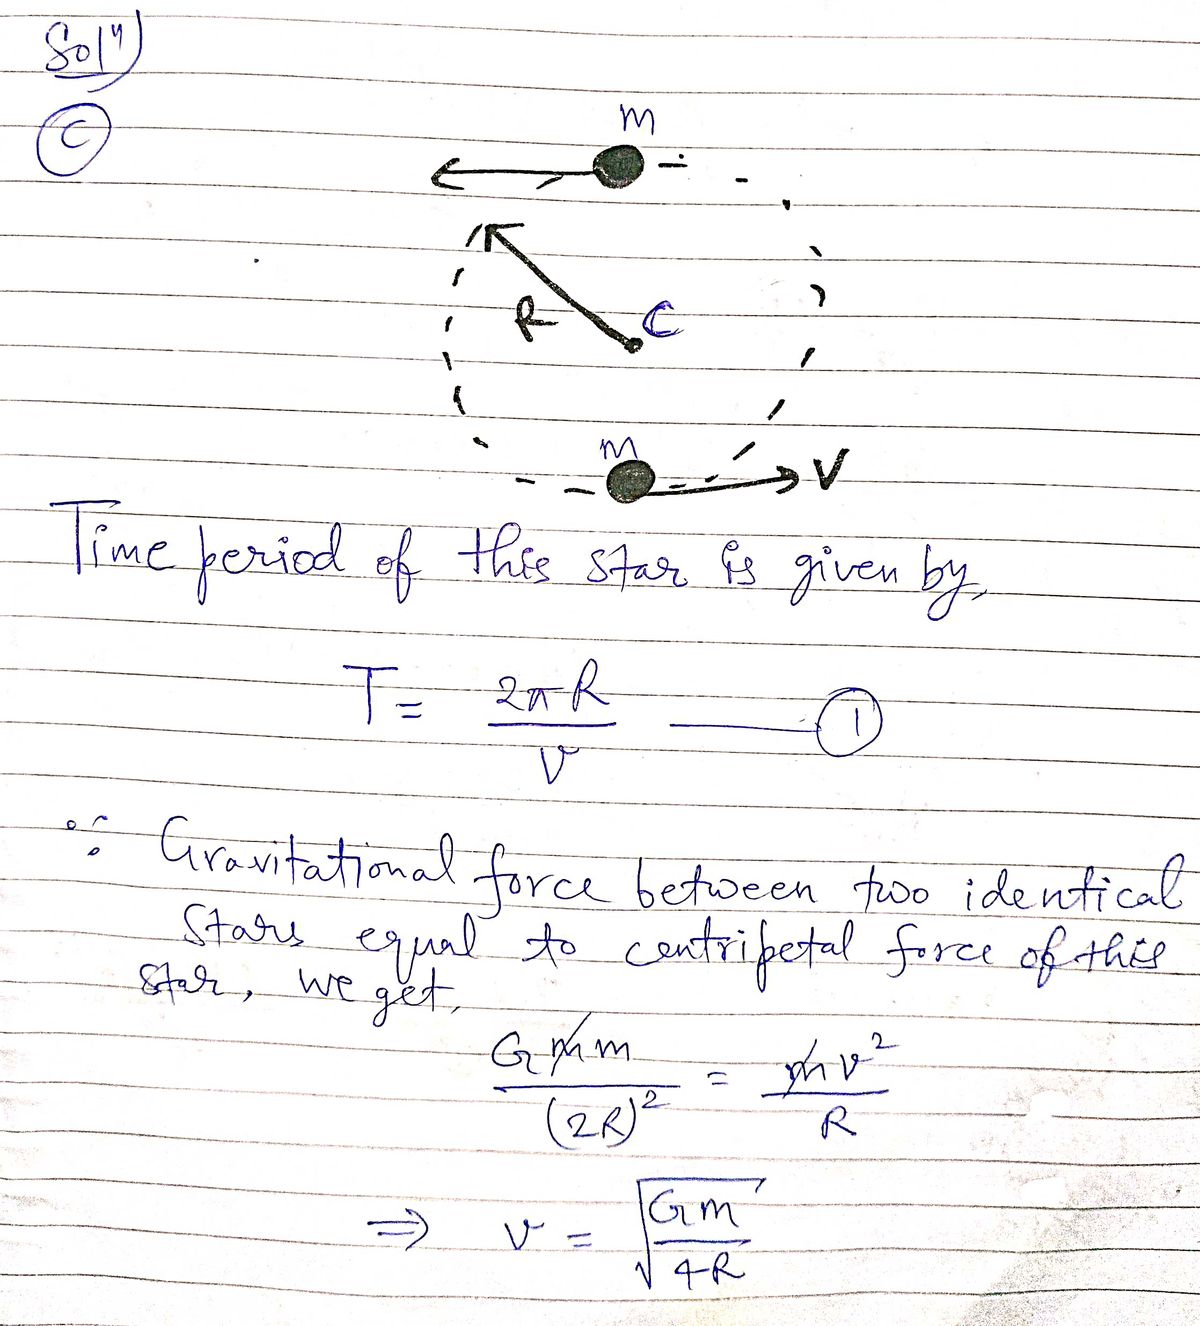 Solⁿ)
C
m
R
C
m
V
Time period of this star is given by,
T = 2πR / v —— 1
∵ Gravitational force between two identical
stars equal to centripetal force of this
star, we get,
Gmm / (2R)² = mv² / R
⇒ v = √(Gm / 4R)